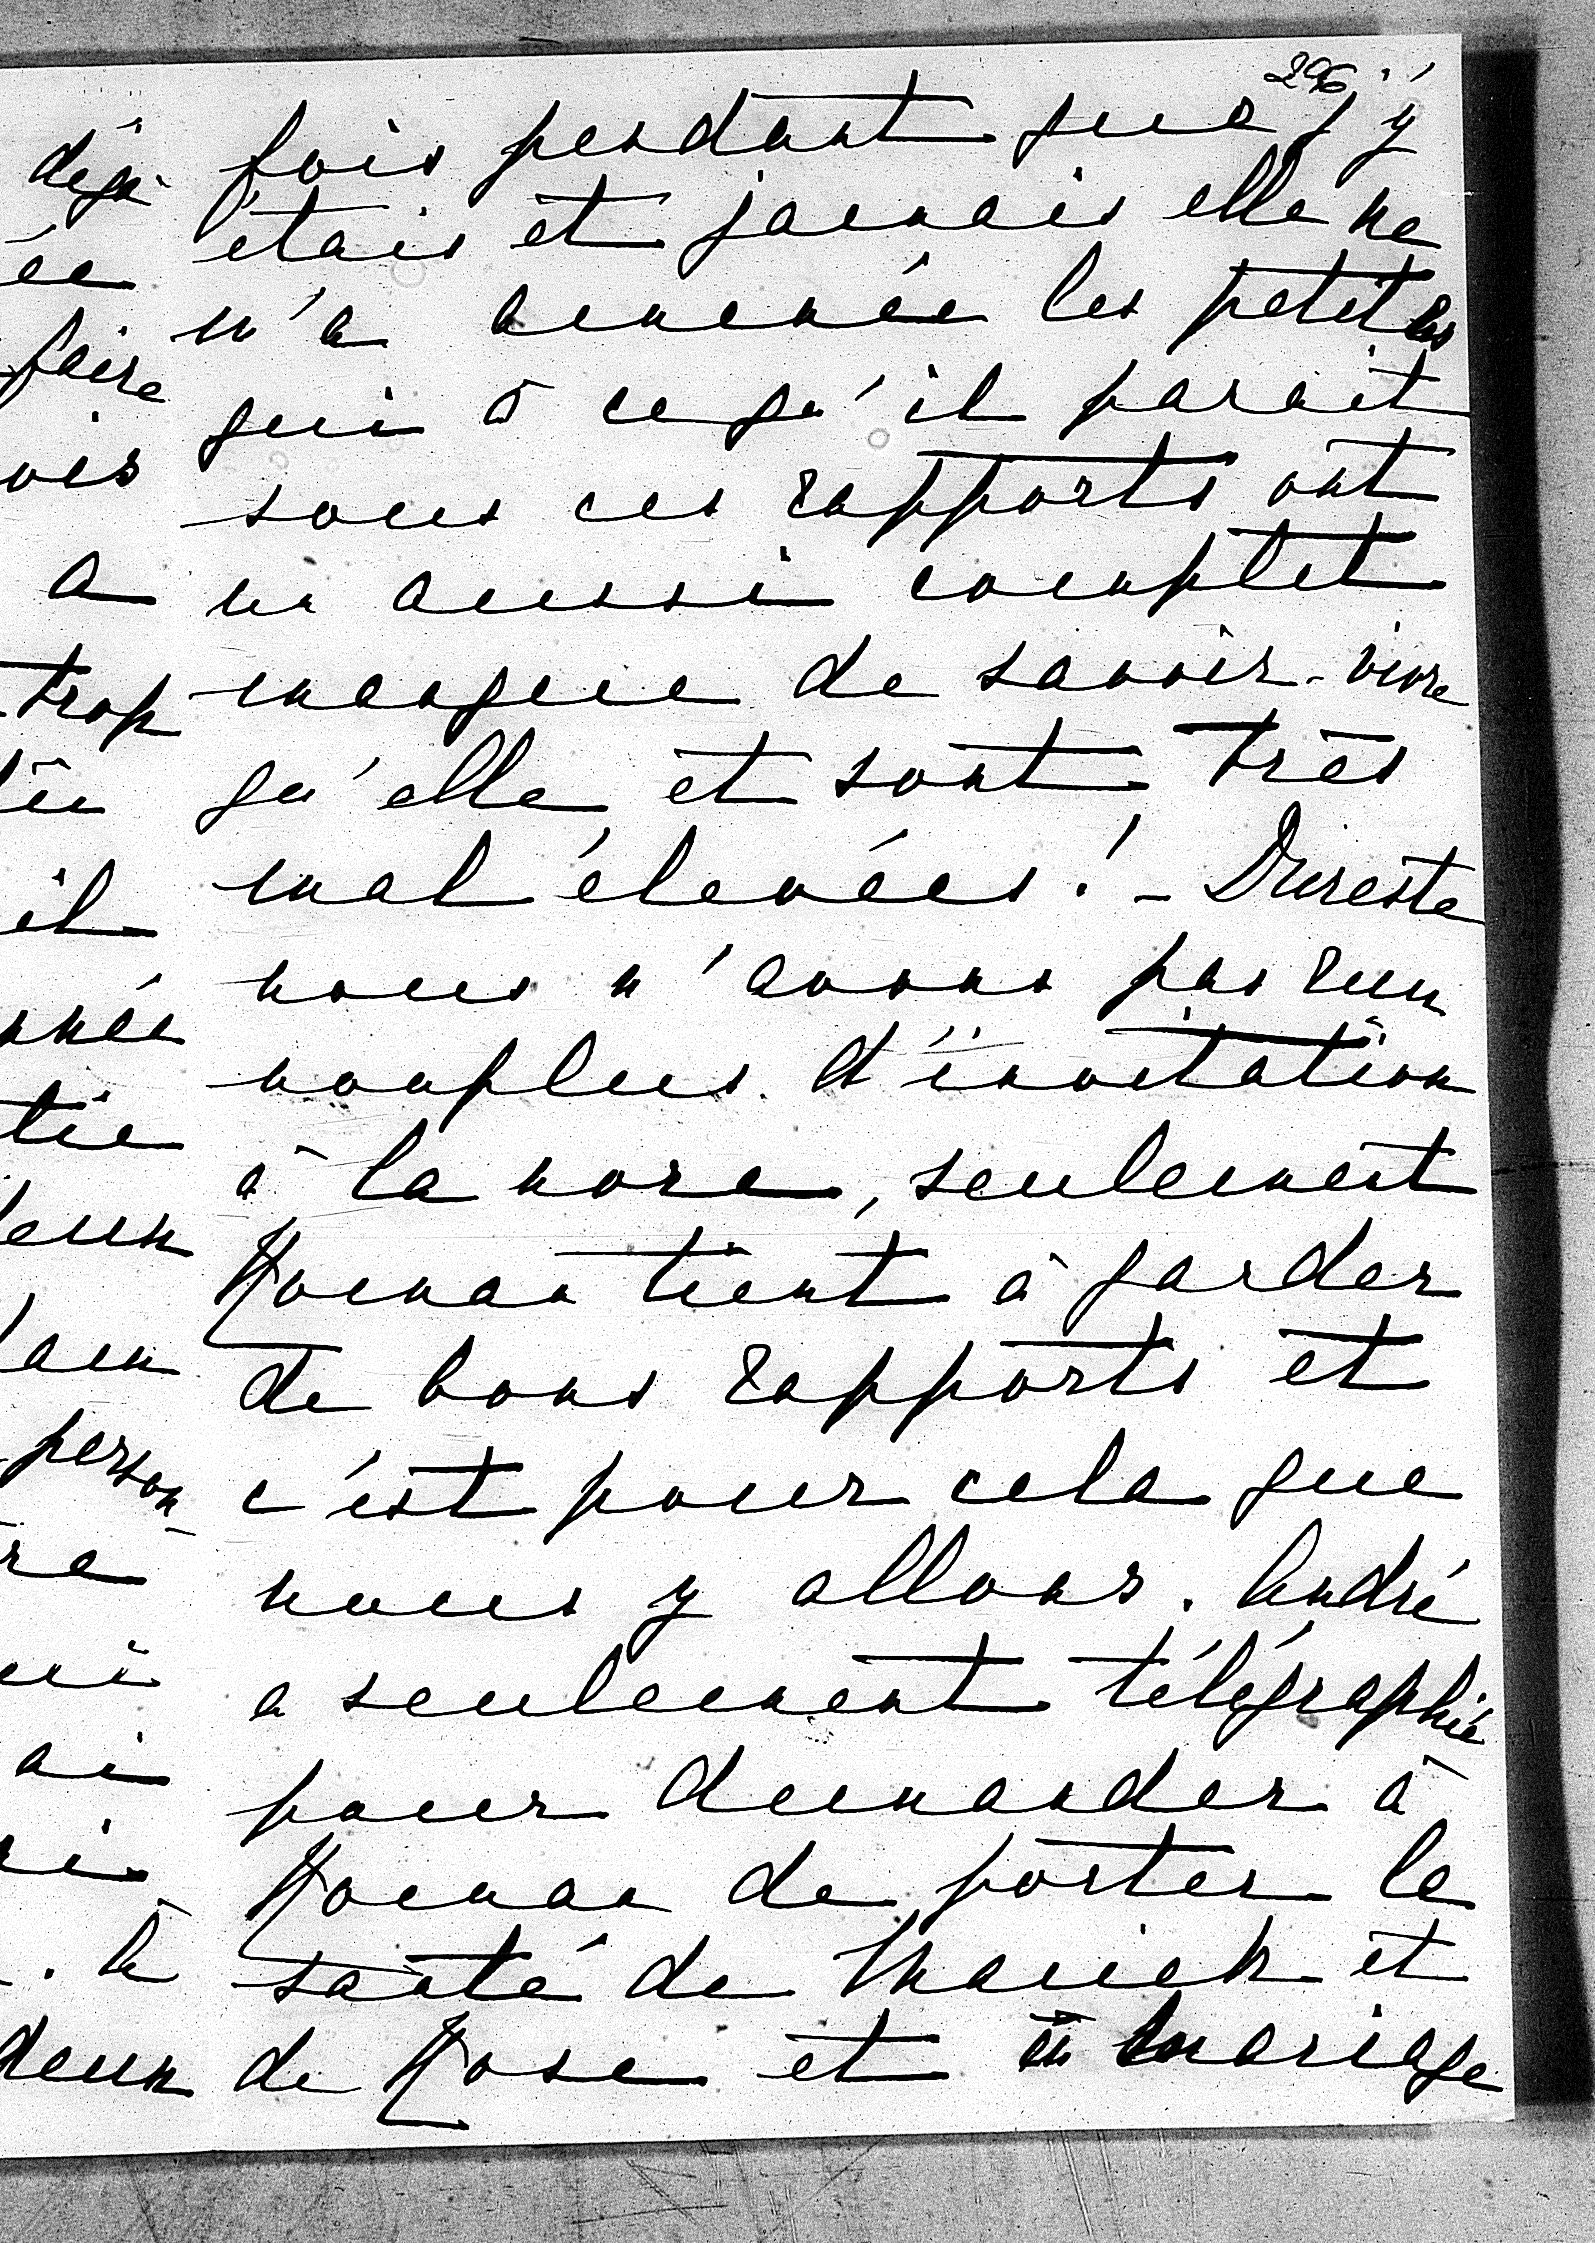 296
fois pendant que j'y
étais et jamais elle ne
m'a amenée les petites
qui à ce qu'il parait
sous ces rapports ont
un aussi complet
manque de savoir-vivre
qu'elle et sont très
mal élevées! - Dureste
nous n'avons pas reçu
nonplus d'invitation
à la noce, seulement
Roman tient à garder
de bons rapports et
c'est pour cela que
nous y allons. André
a seulement télégraphié
pour demander à
Roman de porter la
santé de Maciek et
de Rose et en mariage
déjà
ée
faire
ois
a
trop
il
née
tie
person
re
ai
deux